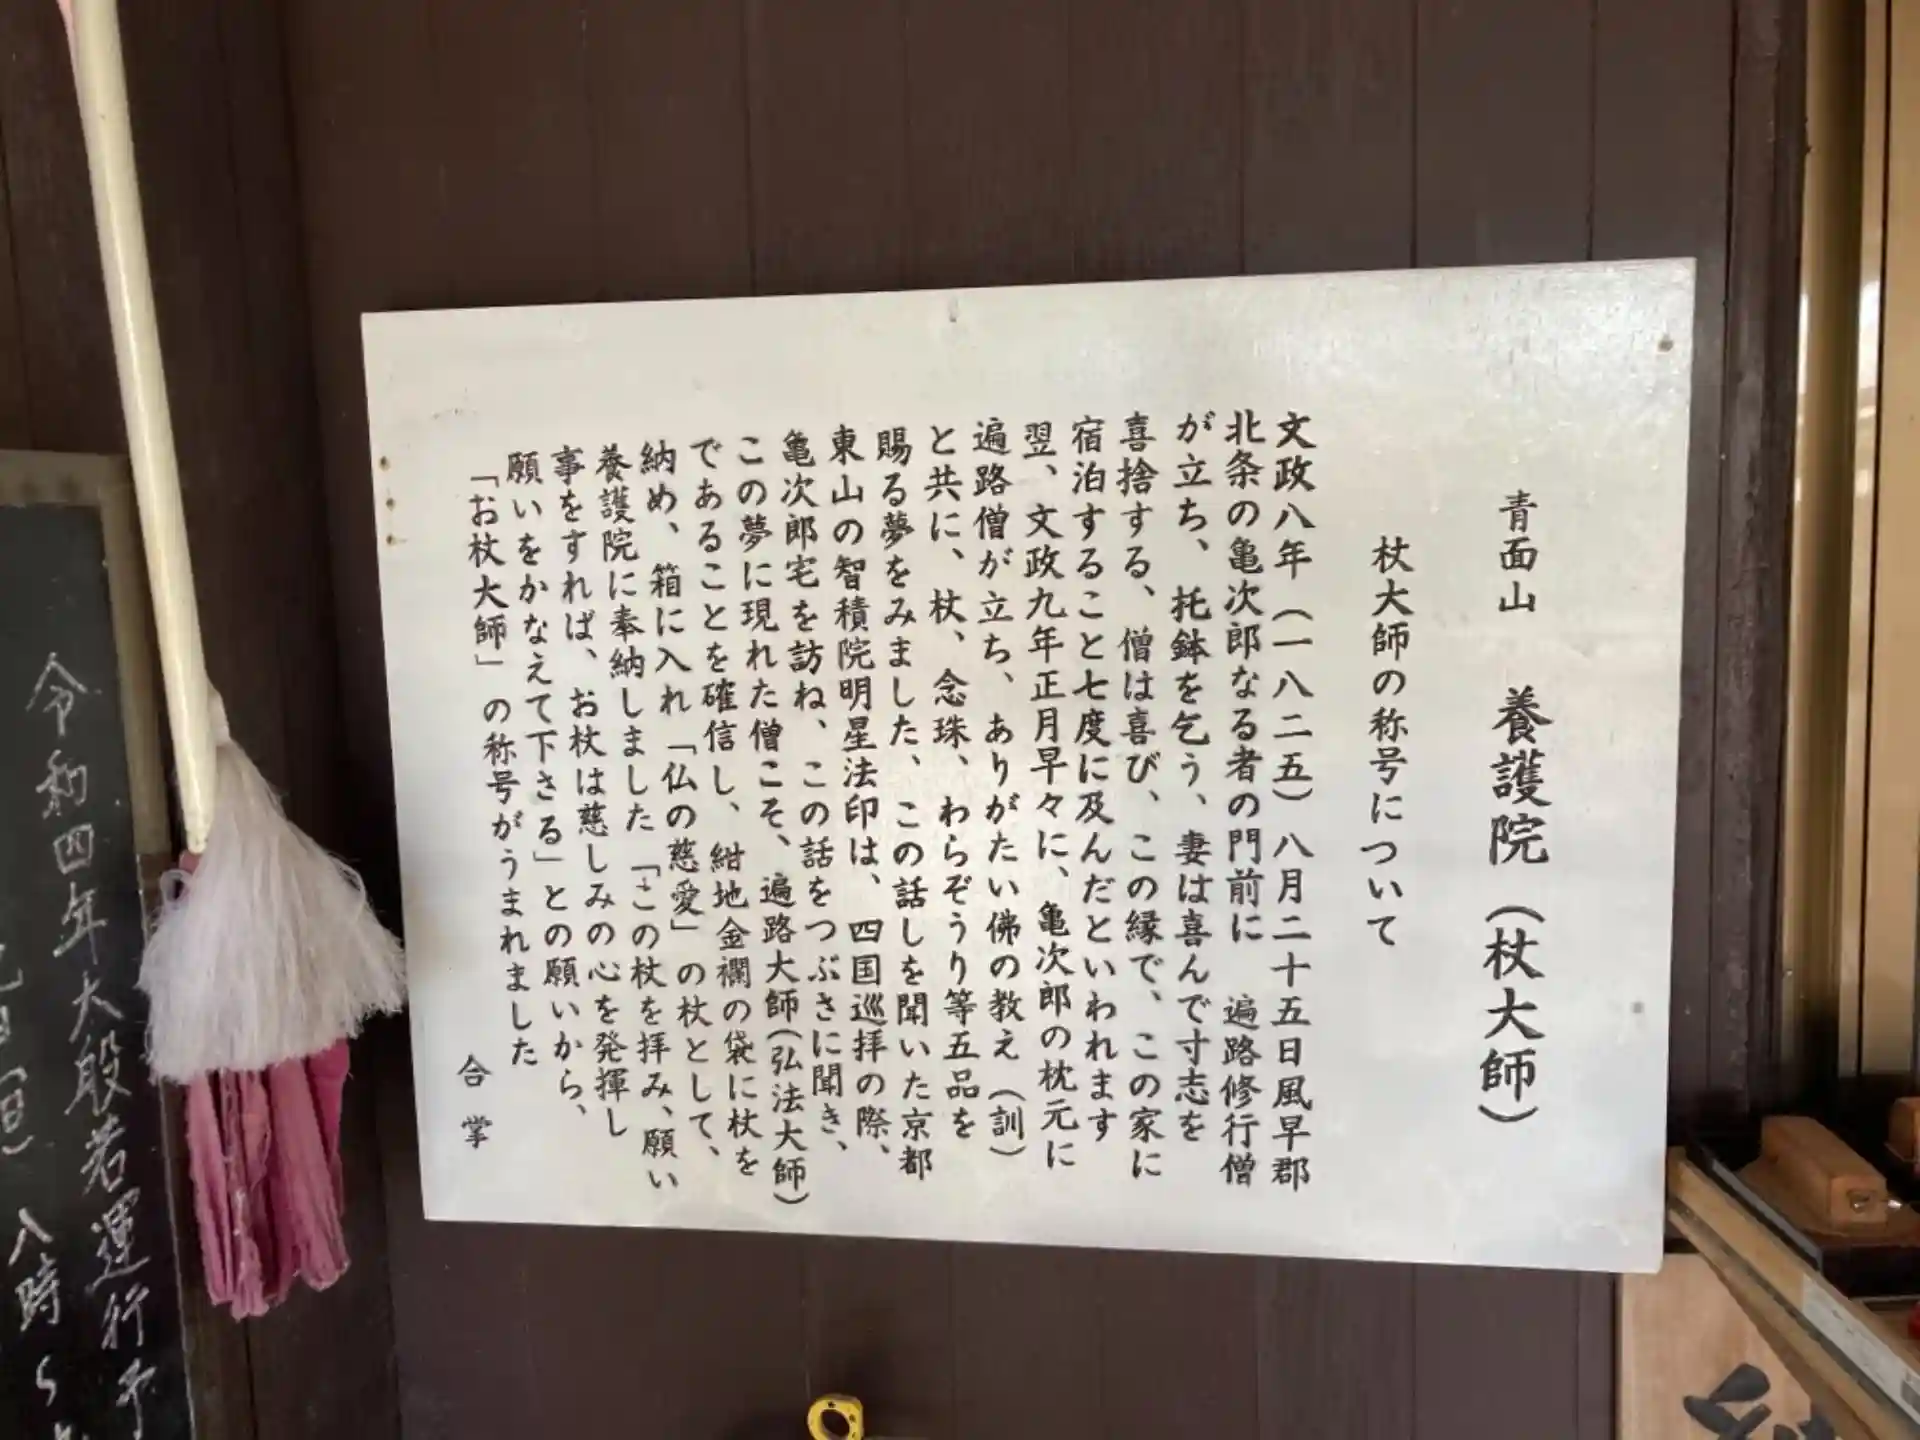 青面山 養護院(杖大師)
杖大師の称号について
文政八年(一八二五)八月二十五日風早郡
北条の亀次郎なる者の門前に 遍路修行僧
が立ち、托鉢を乞う、妻は喜んで寸志を
喜捨する、僧は喜び、この縁で、この家に
宿泊すること七度に及んだといわれます
翌、文政九年正月早々に、亀次郎の枕元に
遍路僧が立ち、ありがたい佛の教え(訓)
と共に、杖、念珠、わらぞうり等五品を
賜る夢をみました、この話しを聞いた京都
東山の智積院明星法印は、四国巡拝の際、
亀次郎宅を訪ね、この話をつぶさに聞き、
この夢に現れた僧こそ、遍路大師(弘法大師)
であることを確信し、紺地金襴の袋に杖を
納め、箱に入れ「仏の慈愛」の杖として、
養護院に奉納しました「この杖を拝み、願い
事をすれば、お杖は慈しみの心を発揮し
願いをかなえて下さる」との願いから、
「お杖大師」の称号がうまれました
合掌
令和四年大般若運行予
八時